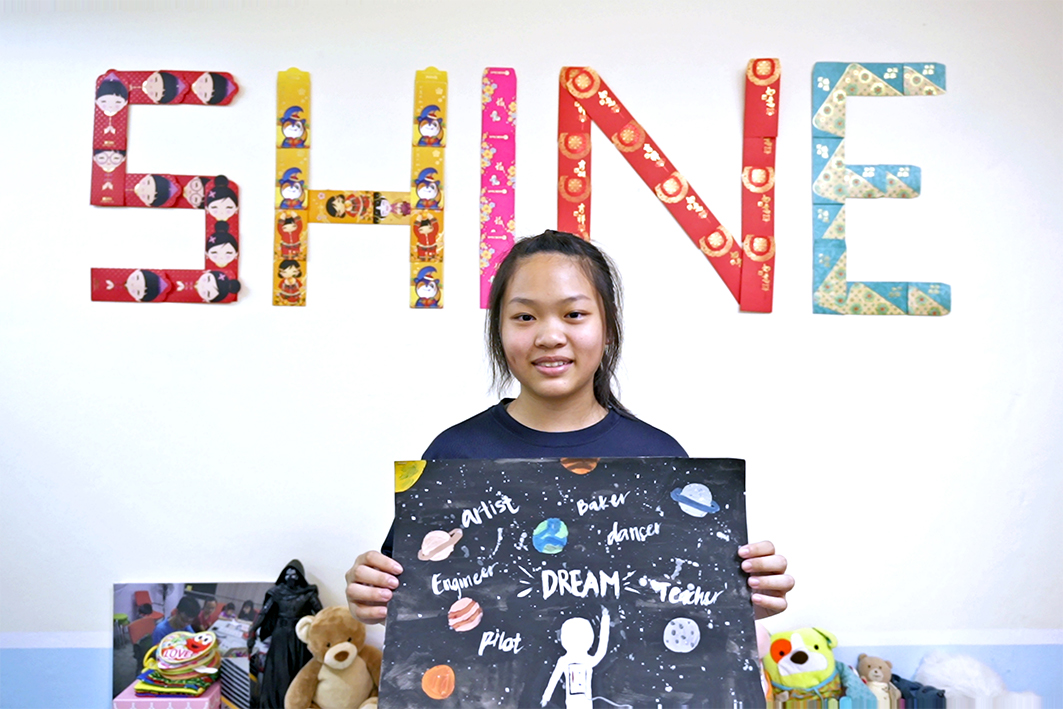 SHINE
artist
Baker
dancer
Engineer
DREAM
Teacher
Pilot
LOVE